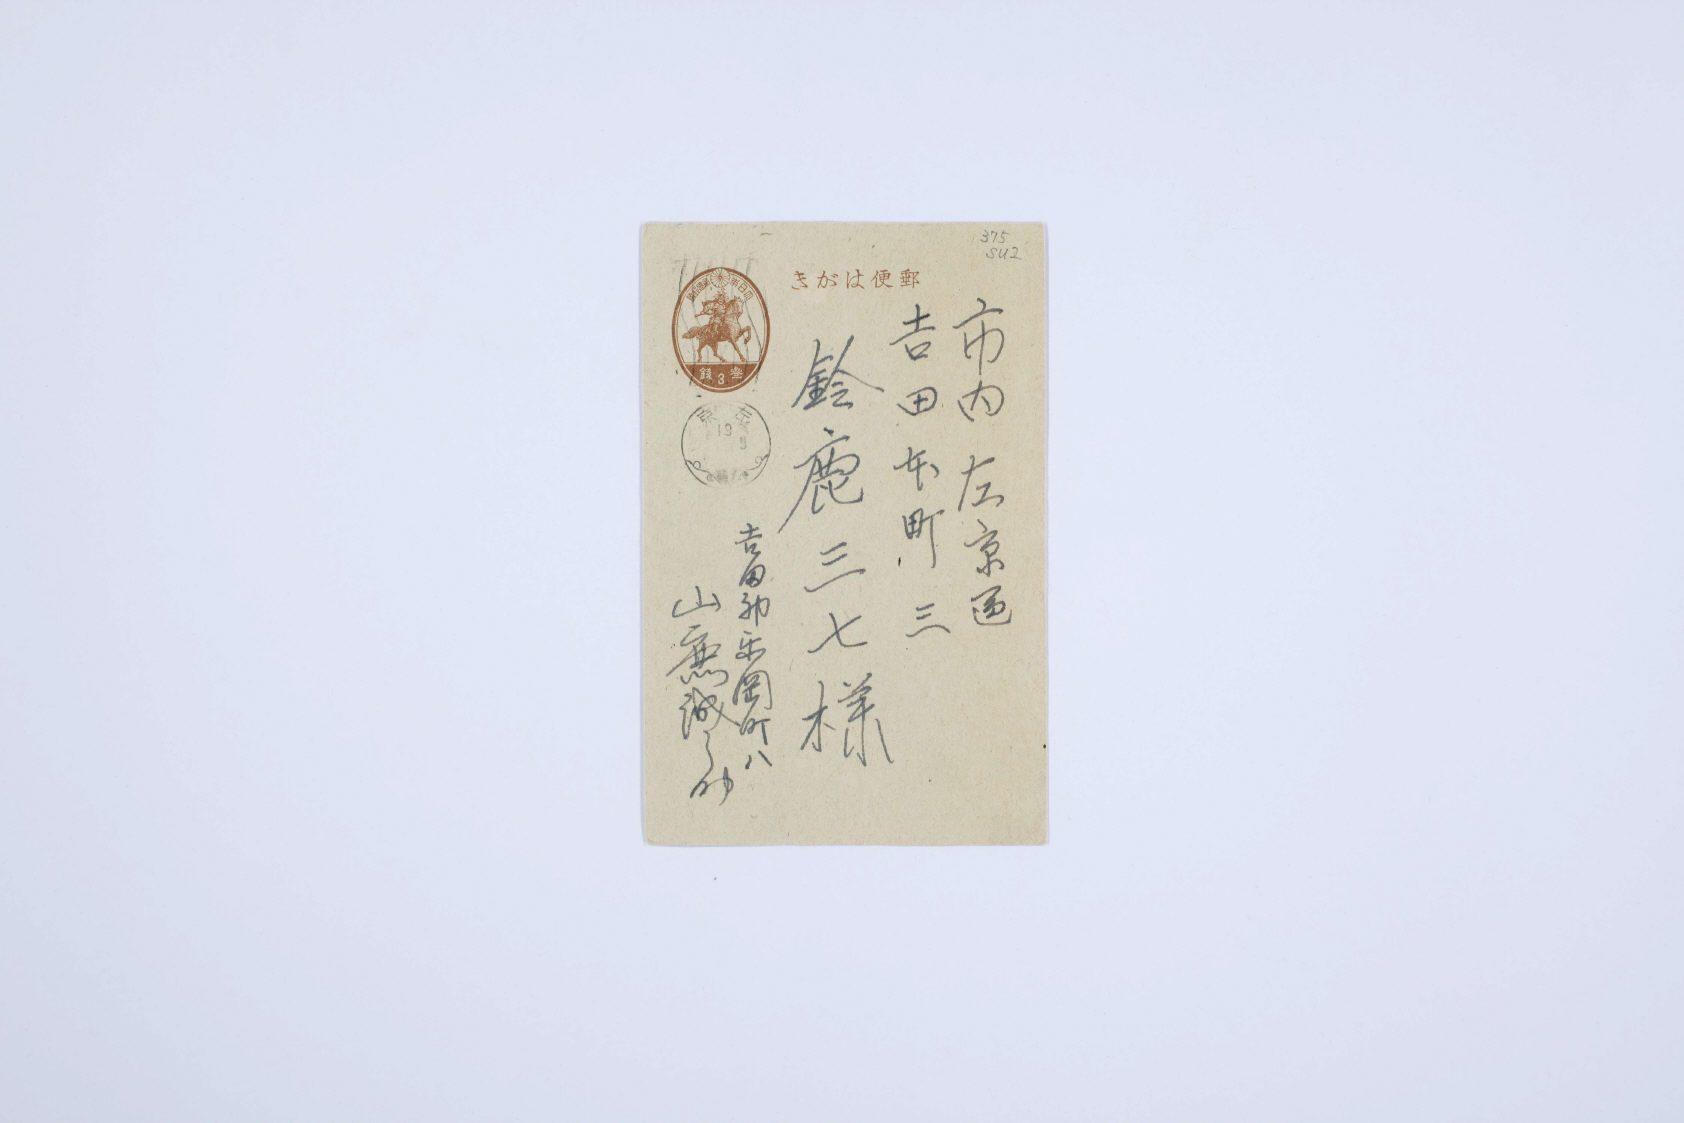 375
SU2
郵便はがき
市内左京區
吉田本町三
鈴鹿三七様
吉田神楽岡町八
山鹿誠之助
大日本帝國郵便
参3銭
左京
19